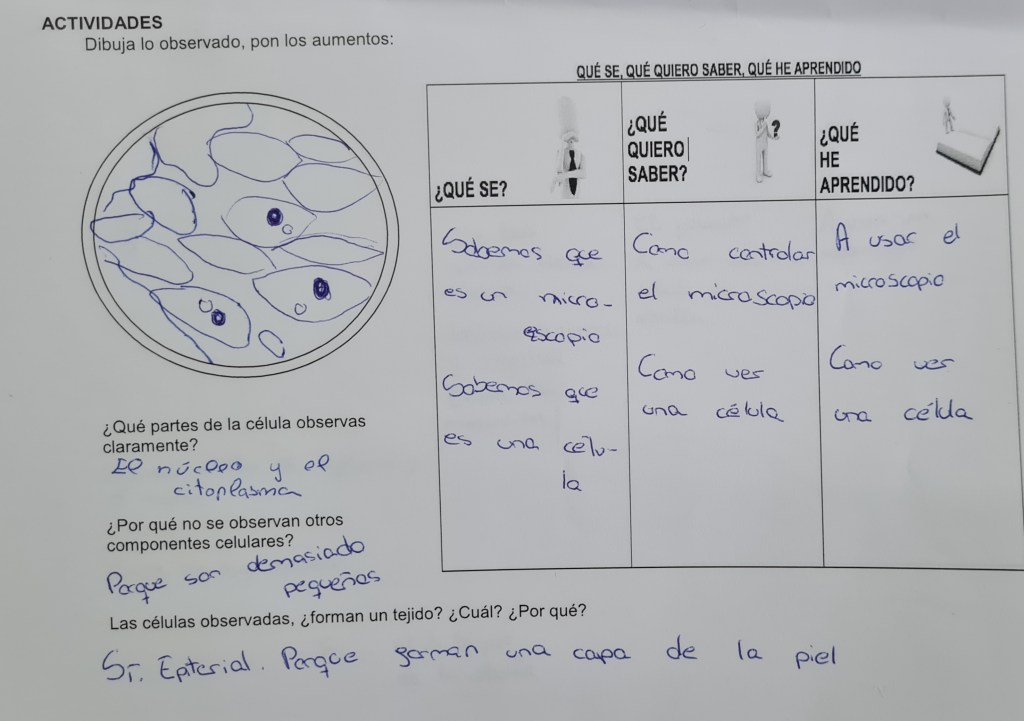 ACTIVIDADES
Dibuja lo observado, pon los aumentos:
QUÉ SE, QUÉ QUIERO SABER, QUÉ HE APRENDIDO
¿QUÉ SE?
¿QUÉ
QUIERO
SABER?
?
¿QUÉ
HE
APRENDIDO?
Sabemos que
es un micro-
escopio
Sabemos que
es una célu-
la
Como controlar
el microscopio
Como ver
una célula
A usar el
microscopio
Como ver
una célula
¿Qué partes de la célula observas
claramente?
El núcleo y el
citoplasma
¿Por qué no se observan otros
componentes celulares?
Porque son demasiado
pequeños
Las células observadas, ¿forman un tejido? ¿Cuál? ¿Por qué?
Sí. Epiterial. Porque forman una capa de la piel